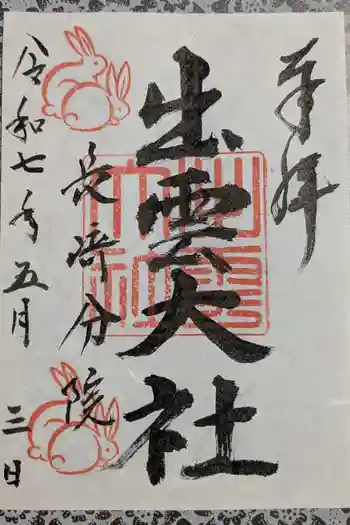 奉拝
出雲大社
長崎分院
令和七年五月三日